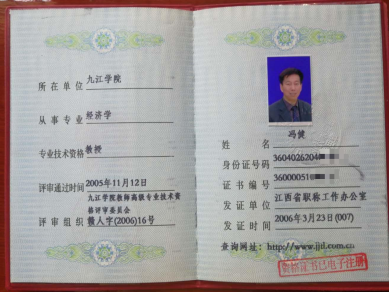 所在单位 九江学院
从事专业 经济学
专业技术资格 教授
评审通过时间 2005年11月12日
九江学院教师高级专业技术资
格评审委员会
评审组织 赣人字(2006)16号
姓名 冯健
身份证号码 36040262040
证书编号 36000051
发证单位 江西省职称工作办公室
发证时间 2006年3月23日(007)
查询网址:http://www.jjtl.com.cn
资格证书已电子注册